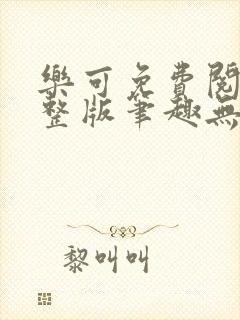 樂可免費閱
整版筆趣無
黎叫叫